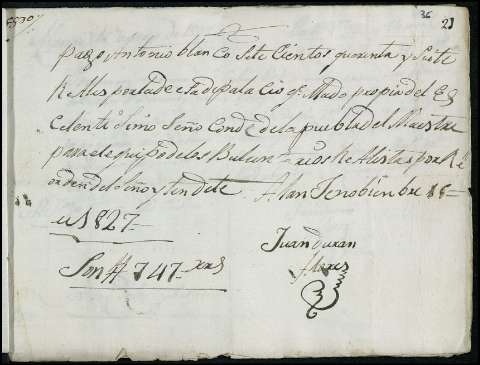 36
21
pago Antonio blanCo SeteCientos quarenta y Siete
Re Ales por la de esa de pala Cio qe. Mado propia del Ex
Celentisimo Seño Conde de la puebla del Maestre
para el equipo de los Bulun= rios Re Alistas por Re
orden del Señor yntendete. Nobienbre 18=
de 1827=
Juan duran
Son # 747= rs
flores